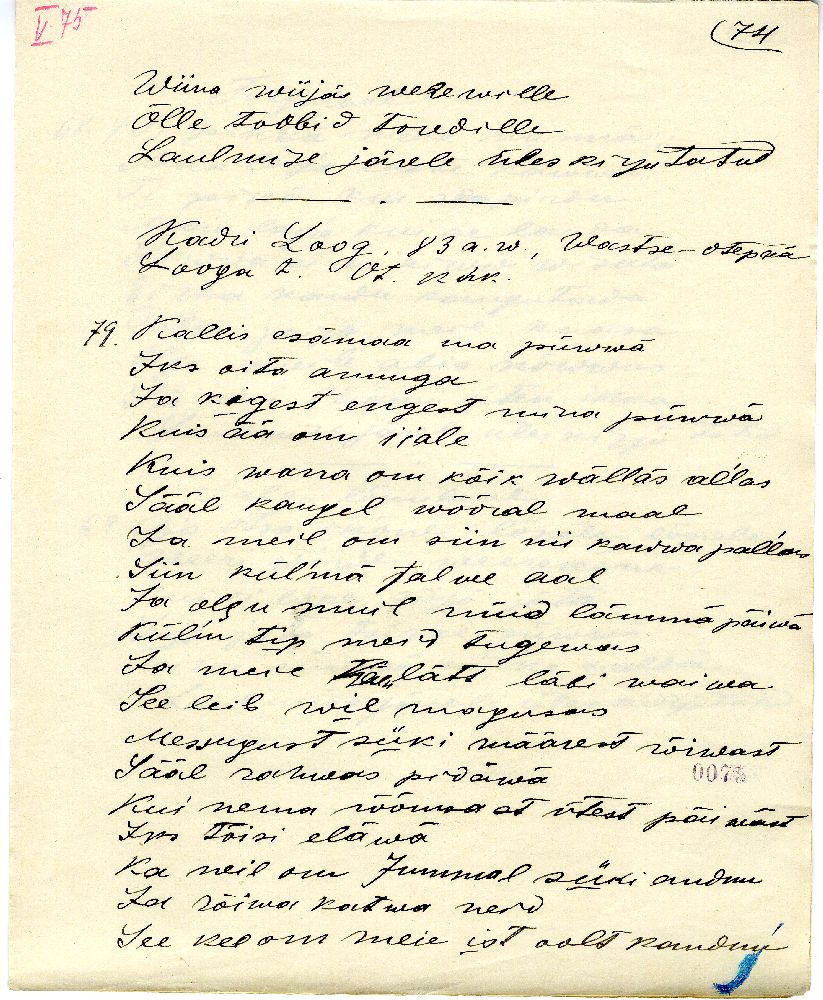 V 75
74
Wiina wiijäs wezewille
Õlle toobid tondille
Laulmise järele üleskirjutatud
Kadri Loog, 83 a. w., Wastse-Otepää
Looga t. Ot. khk.
79. Kallis esämaa ma püwwä
Iks oita armuga
Ja kõgest engest mina püwwä
Kuis ää om ijale
Kuis warra om kõik wällas al'las
Sääl kaugel wõõral maal
Ja meil om siin nii kawwa pal'las
Siin kül'mä talwe aal
Ja olgu muil nüid lämmä päiwä
Kül'm tep meid tugewas
Ja meie lätt läbi waiwa
See leib wil magusas
Messugust süki määrest rõiwast
Sääl rahwas pidäwä
0075
Kui nema rõõmsast ütest päiwäst
Iks tõisi eläwä
Ka neil om Jummal süki andnu
Ja rõiwa katwa neid
See kes om meie ist oolt kandnu